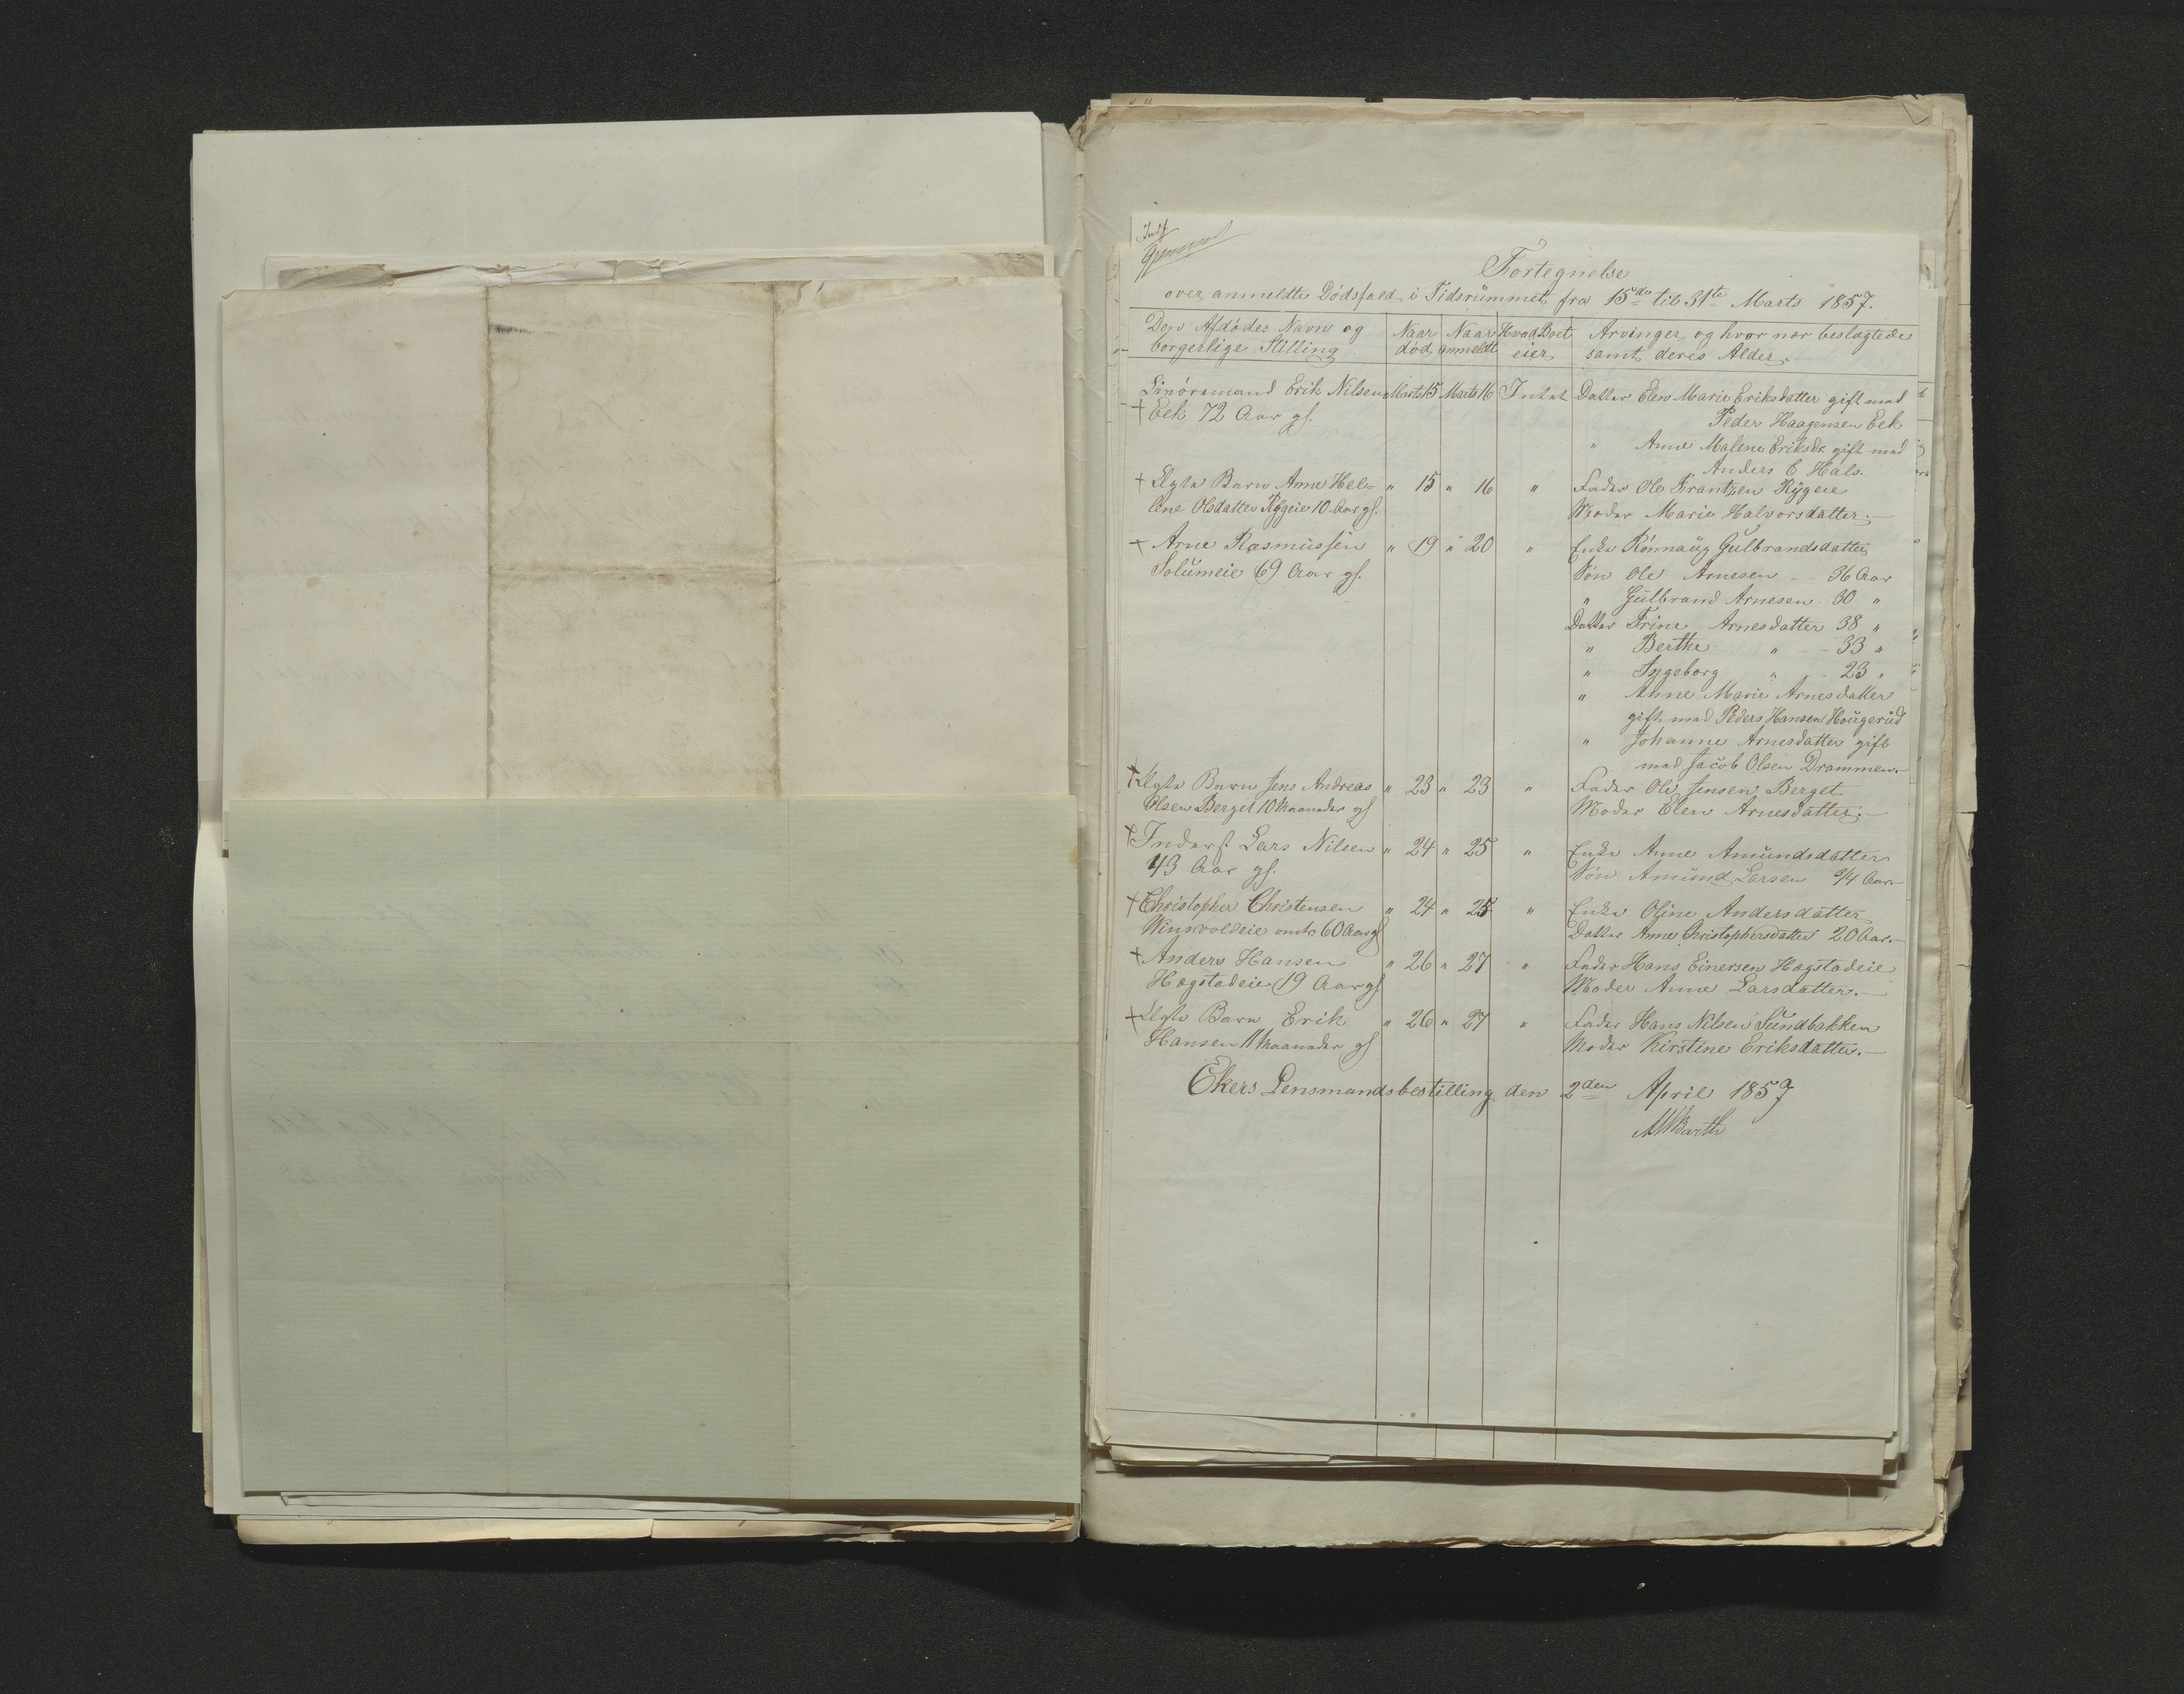 Indf
Fortegnelse
over anmeldte Dödsfald i Tidsrummet fra 15de til 31te Marts 1857.
Den Afdödes Navn og borgerlige Stilling | Naar död | Naar anmeldt | Hvad Boet eier | Arvinger og hvor nær beslægtede samt deres Alder.
Erik Nilsen Marts 15 Marts 16 Intet Datter Elen Marie Eriksdatter gift med
+ Eek 72 Aar gl. Peder Haagensen Eek
" Anne Malene Eriksdr. gift med
Anders E Hals.
+ Ægte Barn Anne Hel- " 15 " 16 " Fader Ole Frantzen Rygeie
lene Olsdatter Rygeie 10 Aar gl. Moder Marie Halvorsdatter.—
+ Arne Rasmussen " 19 " 20 " Enke Rönnaug Gulbrandsdatter
Solumeie 69 Aar gl. Sön Ole Arnesen - - 36 Aar
" Gulbrand Arnesen - 30 "
Datter Trine Arnesdatter 38 "
" Berthe " - - 33 "
" Ingeborg " - 23 "
" Anne Marie Arnesdatter
gift med Peders Hansen Hougerud
" Johanne Arnesdatter gift
med Jacob Olsen Drammen.—
+ Ægte Barn Jens Andreas " 23 " 23 " Fader Ole Jensen Berget
Olsen Berget 10 Maaneder gl Moder Elen Arnesdatter.—
+ Inders. Lars Nilsen " 24 " 25 " Enke Anne Amundsdatter
43 Aar gl. Sön Amund Larsen 3/4 Aar.—
+ Christopher Christensen " 24 " 25 " Enke Oline Andersdatter
60 Aar gl Datter Anne Christophersdatter 20 Aar.—
+ Anders Hansen " 26 " 27 " Fader Hans Einersen Hogstadeie
Hogstadeie 19 Aar gl Moder Anne Larsdatter.—
+ Ægte Barn Erik " 26 " 27 " Fader Hans Nilsen Sundbakken
Hansen 11 Maaneder gl Moder Kirstine Eriksdatter.—
Ekers Lensmandsbestilling den 2den April 1857
Barth